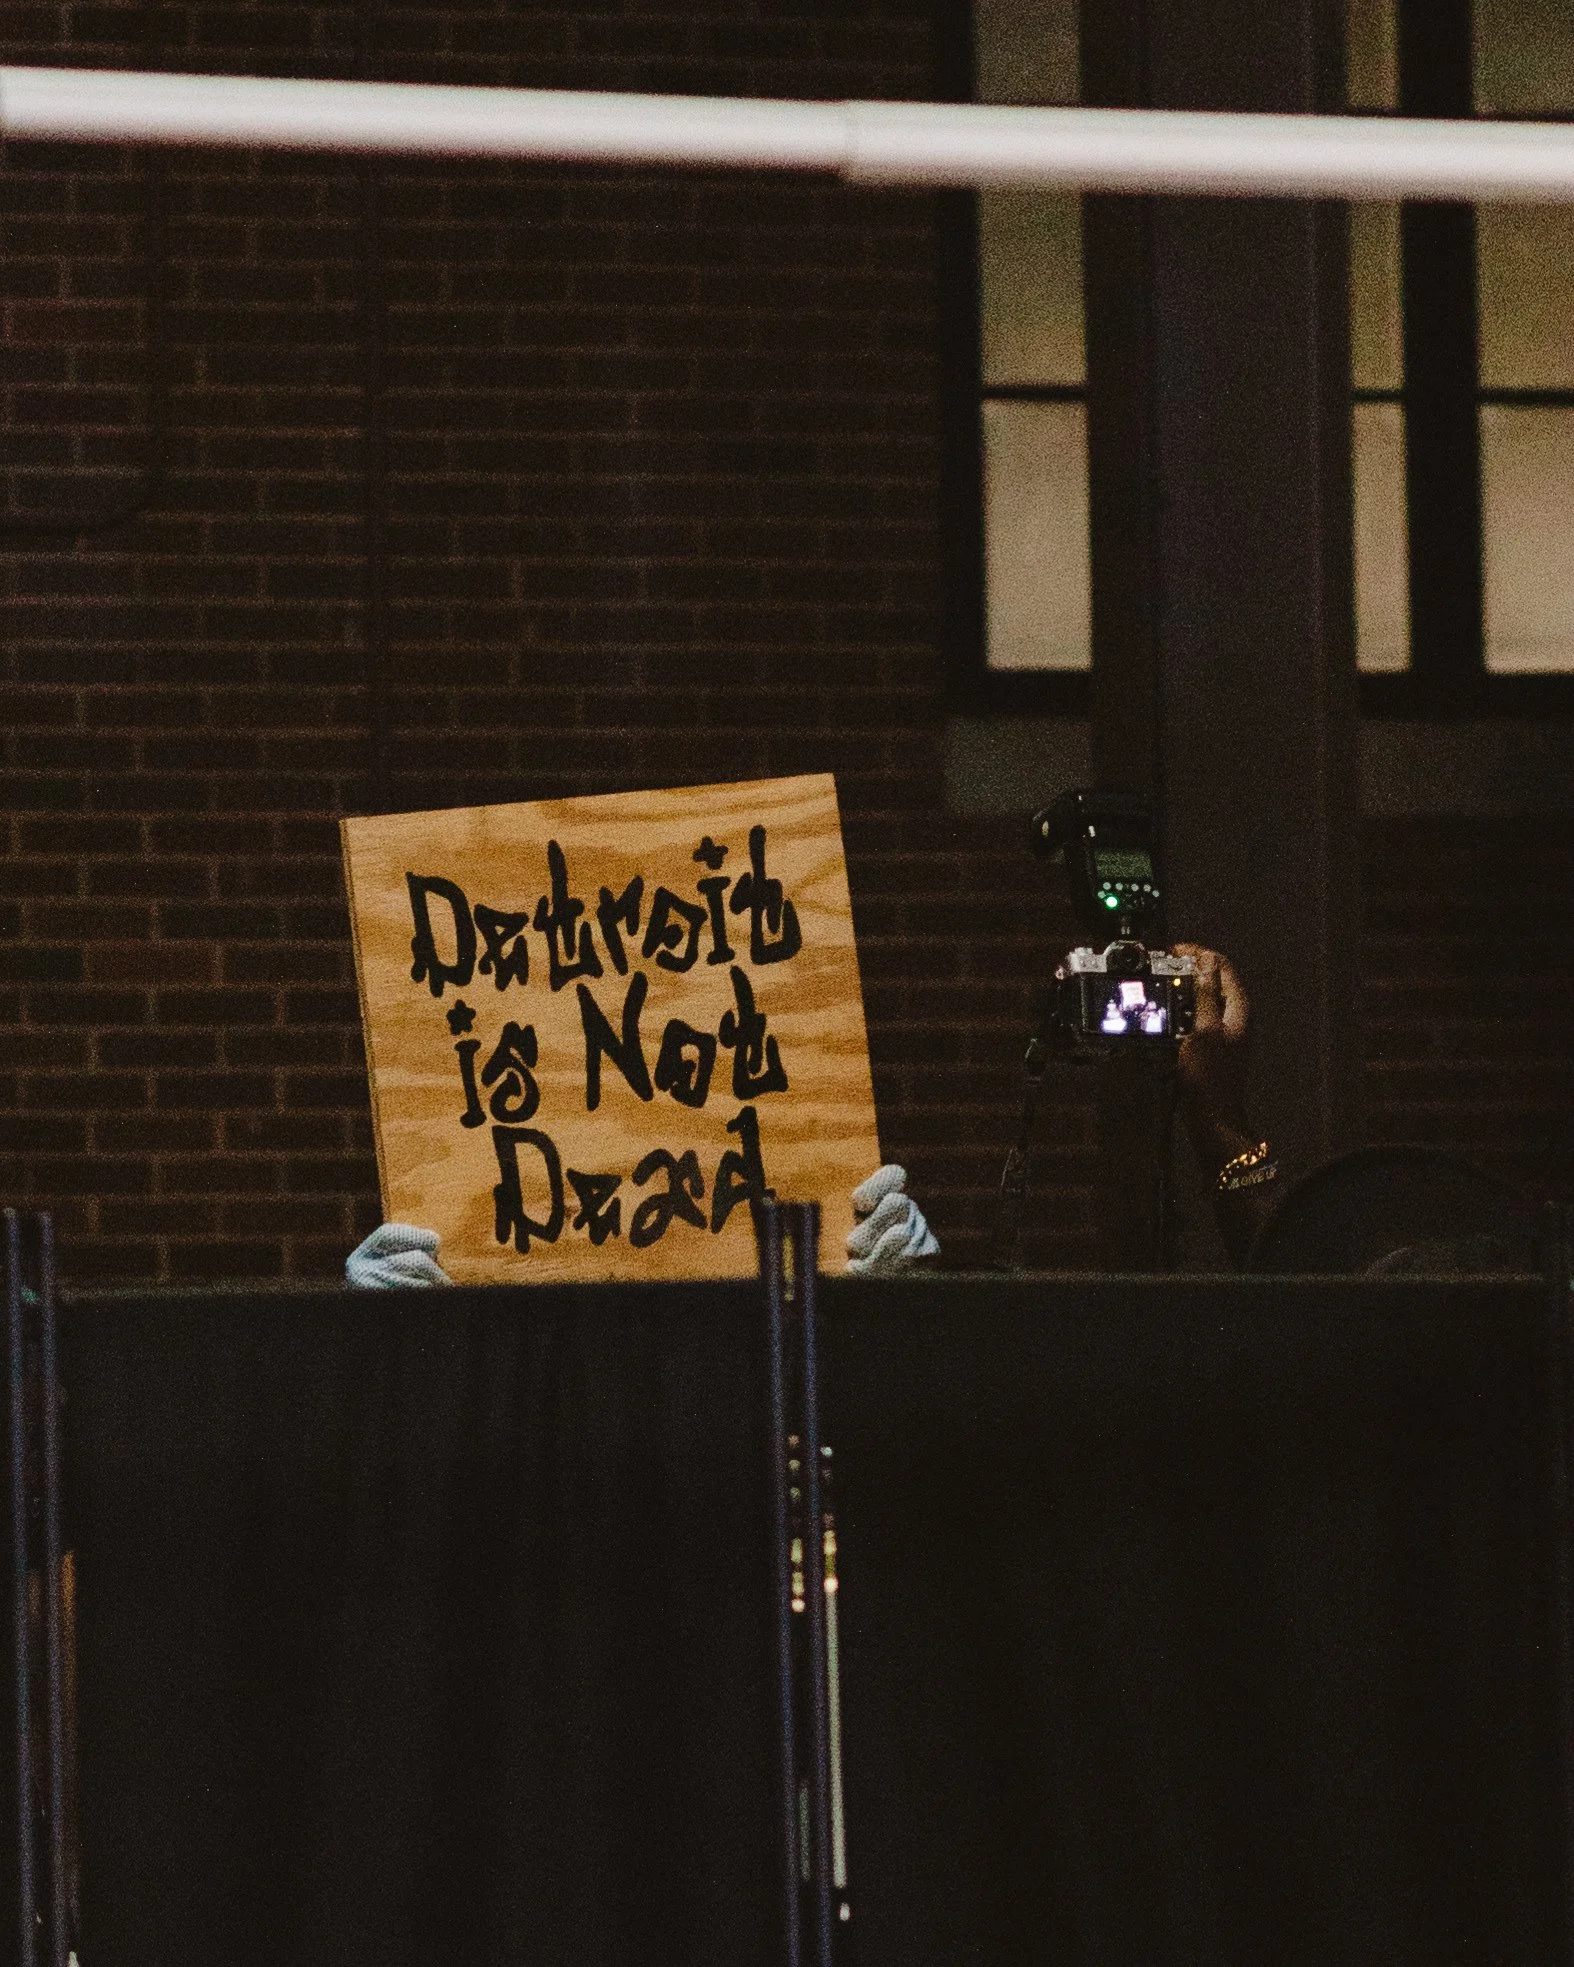 Detroit
is Not
Dead